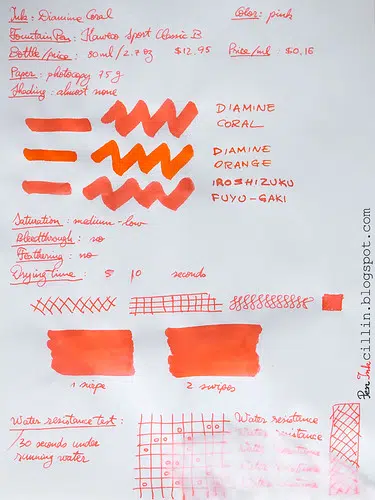 Ink: Diamine Coral
Color: pink
Fountain Pen: Kaweco Sport Classic B
Bottle/price: 80ml/2.7 oz $12.95 Price/ml: $0,16
Paper: photocopy 75 g
Shading: almost none
DIAMINE
CORAL
DIAMINE
ORANGE
IROSHIZUKU
FUYU-GAKI
Saturation: medium-low
Bleedthrough: no
Feathering: no
Drying time: 5 10 seconds
1 swipe
2 swipes
Water resistance test:
30 seconds under
running water
Water resistance
Water resistance
Water resistance
Water resistance
Pen Ink cillin.blogspot.com